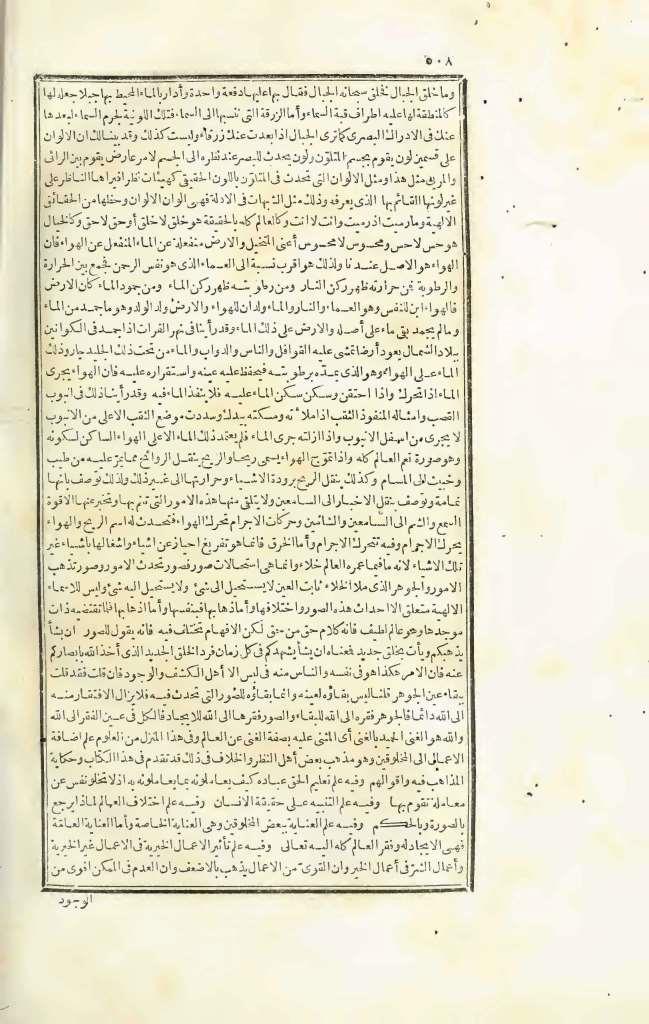 ٥٠٨
وما خلق الجبال فخلق سبحانه الجبال فقال بها عليها دفعة واحدة وأدار بالماء المحيط بها جبلا جعله لها
كالمنطقة لها عليه اطراف قبة السماء وأما الزرقة التي ننسبها الى السماء فتلك اللونية لجرم السماء لبعدها
عنك في الادراك البصري كما ترى الجبال اذا بعدت عنك زرقاء وليست كذلك وقد بينا لك ان الالوان
على قسمين لون يقوم بجسم المتلون ولون يحدث للبصر عند نظره الى الجسم لامر عارض يقوم بين الرائى
والمرئى مثل هذا ومثل الالوان التي تحدث في المتلون باللون الحقيقى كهيئات نظر افيراها الناظر على
غير لونها القائم بها الذى يعرفه وذلك مثل الشبهات في الادلة فهى الوان لا الوان وحظها من الحقائق
الالهية وما رميت اذ رميت وانت لا انت وكالعالم كله بالحقيقة هو خلق لا خلق أو حق لا حق وكالخيال
هو حس لا حس ومحسوس لا محسوس أعنى المتخيل والارض منفعلة عن الماء المنفعل عن الهواء فان
الهواء هو الاصل عندنا ولذلك هو اقرب نسبة الى العماء الذى هو نفس الرحمن فجمع بين الحرارة
والرطوبة فمن حرارته ظهر ركن النار ومن رطوبته ظهر ركن الماء ومن جمود الماء كان الارض
فالهواء ابن للنفس وهو العماء والنار والماء ولدان للهواء والارض ولد الولد وهو ما جمد من الماء
وما لم يجمد بقى ماء على أصله والارض على ذلك الماء وقد رأينا في نهر الفرات اذا جمد في الكوانين
ببلاد الشمال يعود أرضا تمشى عليه القوافل والناس والدواب والماء من تحت ذلك الجليد جار وذلك
الماء على الهواء وهو الذى يمده برطوبته فيحفظ عليه عينه واستقراره عليه فان الهواء يجرى
الماء اذا تحرك واذا احتقن وسكن سكن الماء عليه فلا ينفذ الماء فيه وقد رأينا ذلك في انبوب
القصب وامثاله المنفوذ الثقب اذا ملأته ومسكته بيدك وسددت موضع الثقب الاعلى من الانبوب
لا يجرى من اسفل الانبوب واذا ازلته جرى الماء فلم يعتمد ذلك الماء الاعلى الهواء الساكن لسكونه
وهو صورة تعم العالم كله واذا تموج الهواء يسمى ريحا والريح ينقل الروائح مما يمر عليه من طيب
وخبيث الى المسام وكذلك ينقل الريح برودة الاشياء وحرارتها الى غير ذلك ولذلك توصف بانها
نمامة وتوصف بنقل الاخبار الى السامعين ولا يتلقى منها هذه الامور التي تنم بها وتخبر عنها الا قوة
السمع والشم الى السامعين والشامين وحركات الاجرام تحرك الهواء فتحدث له اسم الريح والهواء
يحرك الاجرام وفيه تتحرك الاجرام وأما الخرق فانما هو تفريغ احياز عن اشياء واشغالها باشياء غير
تلك الاشياء لانه ما فيما عمره العالم خلاء وانما هى استحالات صور فصور تحدث لامور وصور تذهب
لامور والجوهر الذى ملأ الخلاء ثابت العين لا يستحيل الى شئ ولا يستحيل اليه شئ وليس للاسماء
الالهية متعلق الا احداث هذه الصور واختلافها وأما ذهابها فبنفسها وأما اذهابها فما تقتضيه ذات
موجدها وهو عالم لطيف فانه كلام حق من حق لكن الافهام تختلف فيه فانه يقول للصور ان يشأ
يذهبكم ويأت بخلق جديد فمعناه ان يشأ يشهدكم في كل زمان فرد الخلق الجديد الذى أخذ الله بابصاركم
عنه فان الامر هكذا هو في نفسه والناس منه في لبس الا أهل الكشف والوجود فان قلت فقد قلت
ببقاء عين الجوهر قلنا ليس بقاؤه لعينه وانما بقاؤه للصور التي تحدث فيه فلا يزال الافتقار منه
الى الله دائما فالجوهر فقره الى الله للبقاء والصور فقرها الى الله للايجاد فالكل في عين الفقر الى الله
والله هو الغنى الحميد بالغنى أى المثنى عليه بصفة الغنى عن العالم وفي هذا المنزل من العلوم علم اضافة
الاعمال الى المخلوقين وهو مذهب بعض أهل النظر والخلاف في ذلك قد تقدم في هذا الكتاب وحكاية
المذاهب فيه واقوالهم وفيه علم تعليم الحق عباده كيف يعاملونه بما يعاملونه به اذ لا تخلو نفس عن
معاملة تقوم بها وفيه علم التنبيه على حقيقة الانسان وفيه علم اختلاف العالم لماذا يرجع
بالصورة وبالحكم وفيه علم العناية ببعض المخلوقين وهى العناية الخاصة وأما العناية العامة
فهى الايجاد له وفقر العالم كله اليه تعالى وفيه علم تأثير الاعمال الخيرية في الاعمال غير الخيرية
وأعمال الشر في أعمال الخير وان القوى من الاعمال يذهب بالاضعف وان العدم في الممكن اقوى من
الوجود